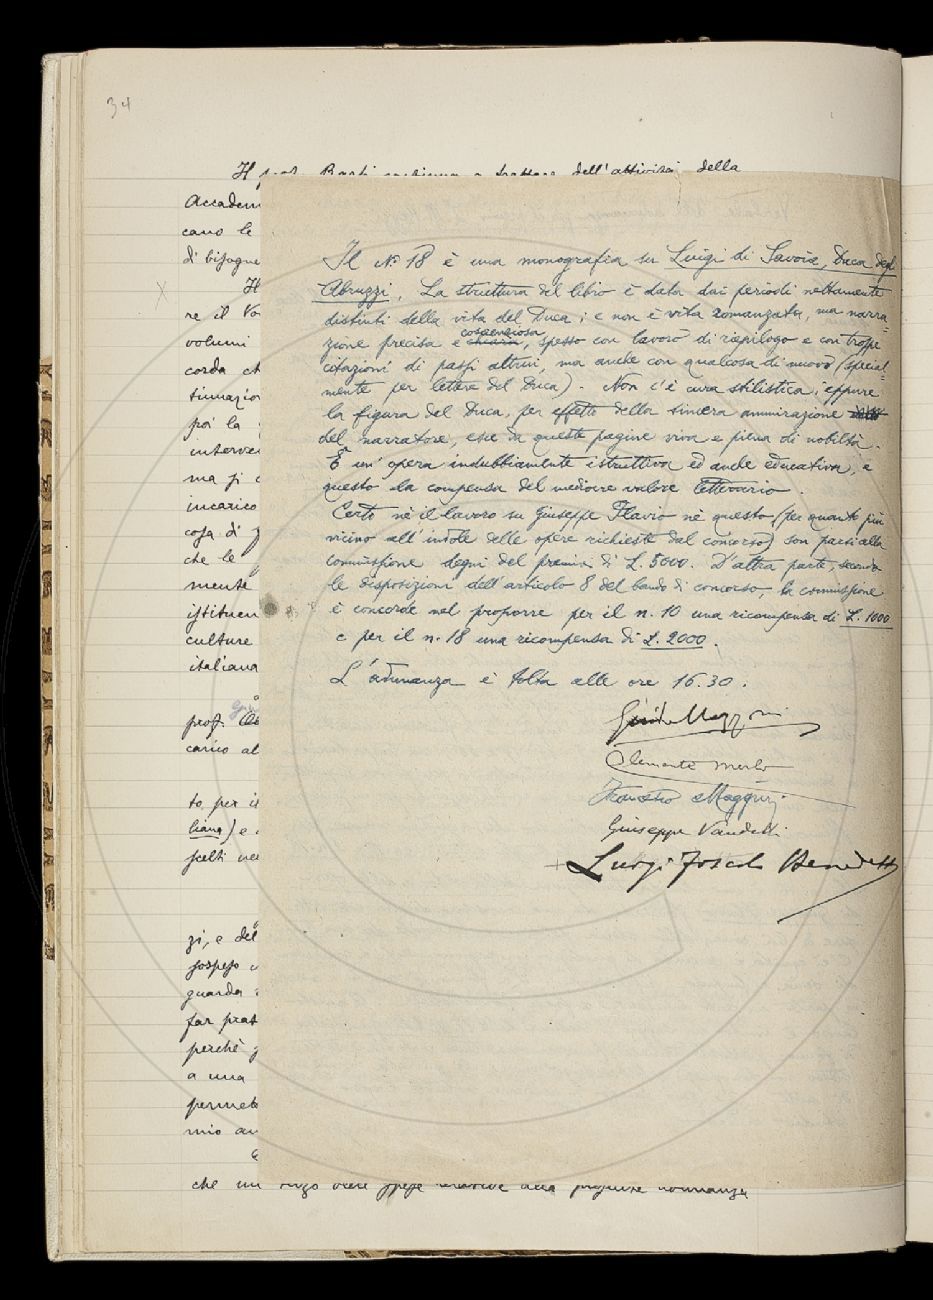 34
Il prof. sostiene a trattare dell'attività della
Accadem
cano le
di bisogne
Il
re il Vo
volumi
corda ch
timazion
poi la
interven
ma si
incarico
cosa di
che le
mente
istituen
culture
italiana
prof.
carico al
to, per i
liana) e
scelti ne
zi, e del
sospeso
guarda
far prat
perchè
a una
permet
mio au
che un
Il No 18 è una monografia su Luigi di Savoia, Duca degli
Abruzzi. La struttura del libro è data dai periodi nettamente
distinti della vita del Duca; e non è vita romanzata, ma narra-
zione precisa e chiara coscenziosa, spesso con lavoro di riepilogo e con troppe
citazioni di passi altrui, ma anche con qualcosa di nuovo (special-
mente per lettere del Duca). Non c'è cura stilistica; eppure
la figura del Duca, per effetto della sincera ammirazione
del narratore, esce in queste pagine viva e piena di nobiltà.
È un'opera indubbiamente istruttiva ed anche educativa, e
questo la compensa del mediocre valore letterario.
Certo nè il lavoro su Giuseppe Flavio nè questo (per quanto più
vicino all'indole delle opere richieste dal concorso) son parsi alla
commissione degni del premio di L. 5000. D'altra parte, secondo
le disposizioni dell'articolo 8 del bando di concorso, la commissione
è concorde nel proporre per il n. 10 una ricompensa di L. 1000
e per il n. 18 una ricompensa di L. 2000.
L'adunanza è tolta alle ore 16.30.
Guido Mazzoni
Clemente Merlo
Francesco Maggini
Giuseppe Vandelli
Luigi Foscolo Benedetto